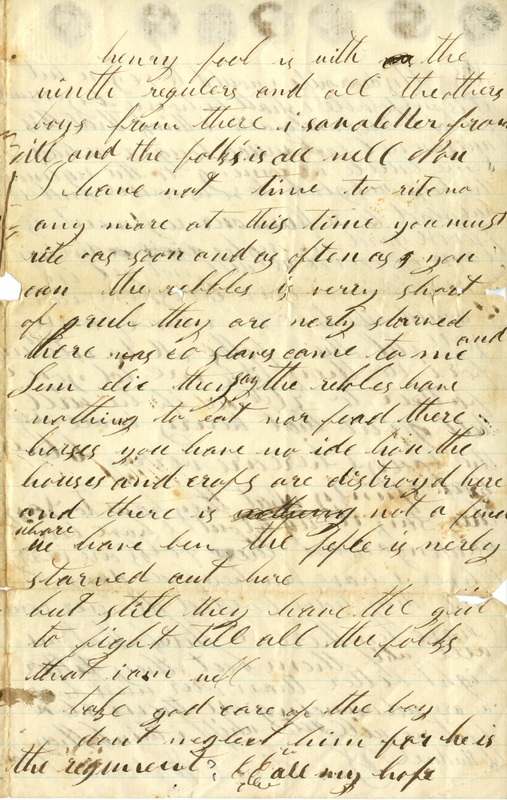 henry pool is with the
ninth regulers and all the others
boys from there i saw a letter from
ill and the folks is all well
I have not time to rite no
any more at this time you must
rite as soon and as often as you
can the rebbles is verry short
of grub they are nerly starved
there was 20 slaves came to me and
Lem die they say the rebles have
nothing to eat nor feed there
horses you have no ide how the
houses and crops are distroyd here
and there is nothing not a fence
whare
we have ben the peple is nerly
starved out here
but still they have the grit
to fight till all the folks
that i am well
take god care of the boy
dont neglect him for he is
the regiment all my hope